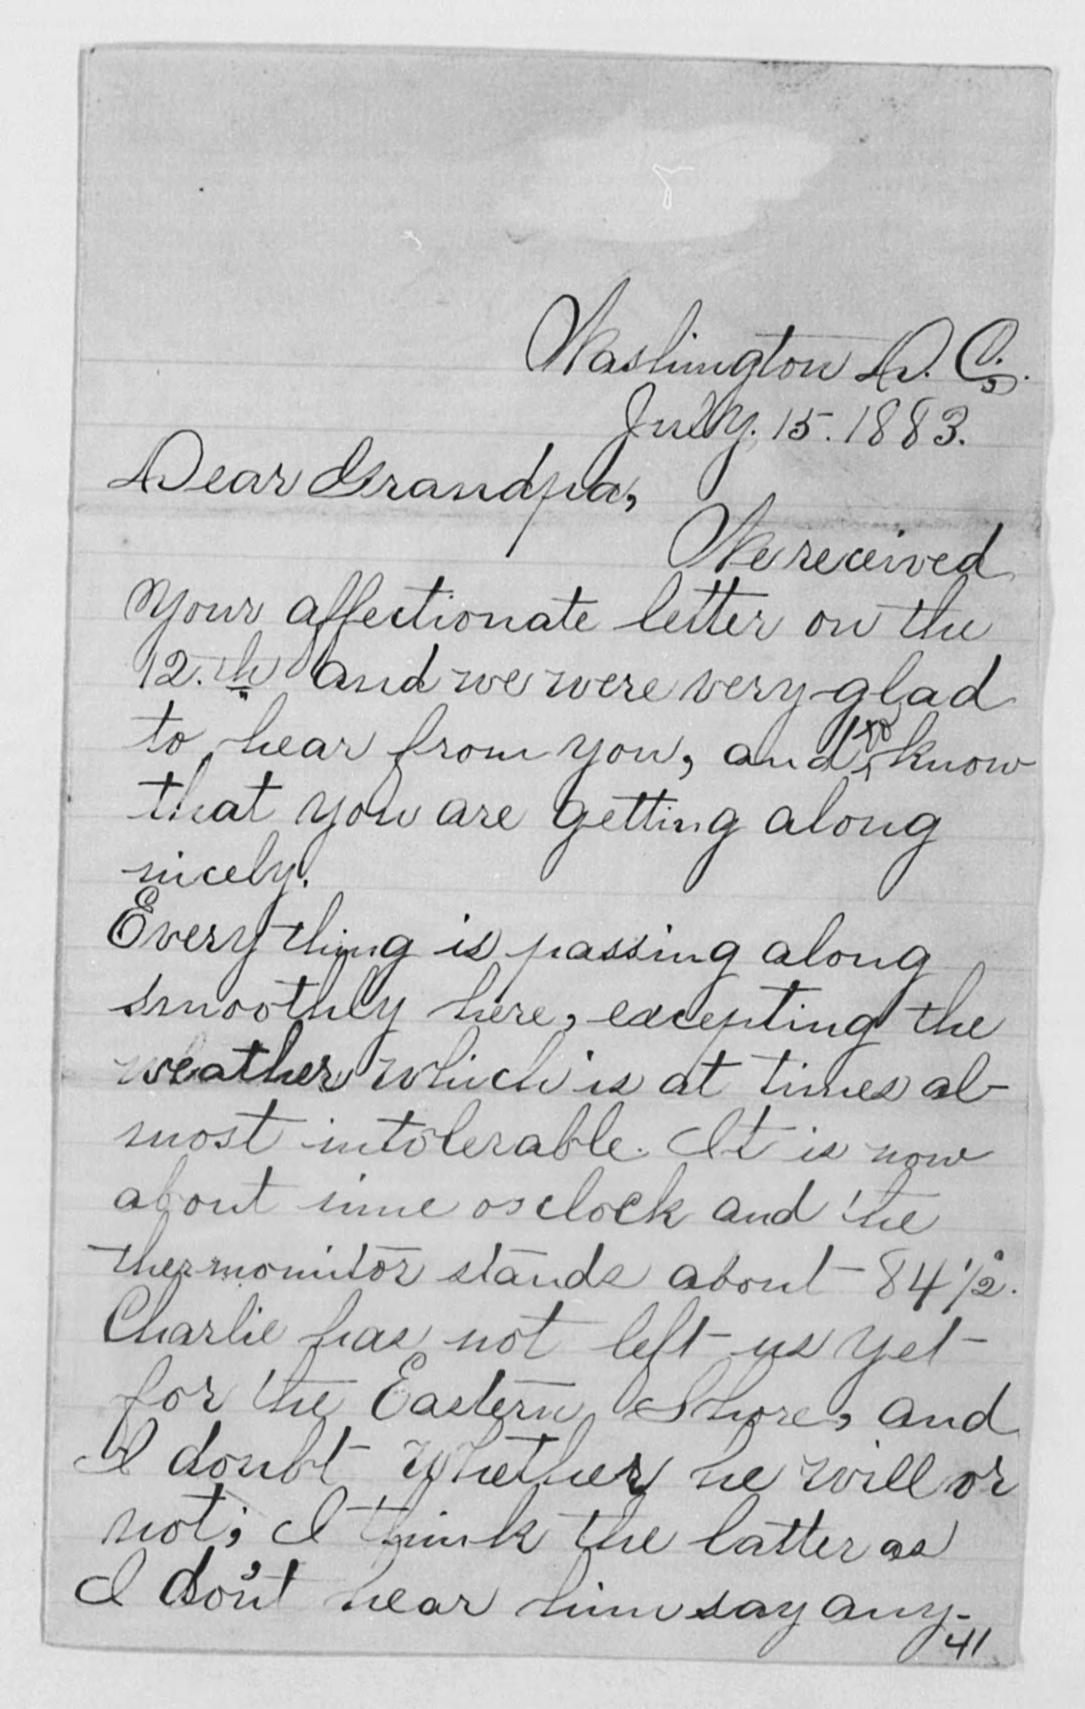 Washington D. C.,
July, 15. 1883.
Dear Grandpa,
We received
Your affectionate letter on the
12.th and we were very glad
to hear from you, and to know
that you are getting along
nicely.
Everything is passing along
smoothly here, excepting the
weather which is at times al-
most intolerable. It is now
about nine o'clock and the
thermonitor stands about 84 1/2°.
Charlie has not left us yet
for the Eastern Shore, and
I doubt whether he will or
not; I think the latter as
I don't hear him say any-
41